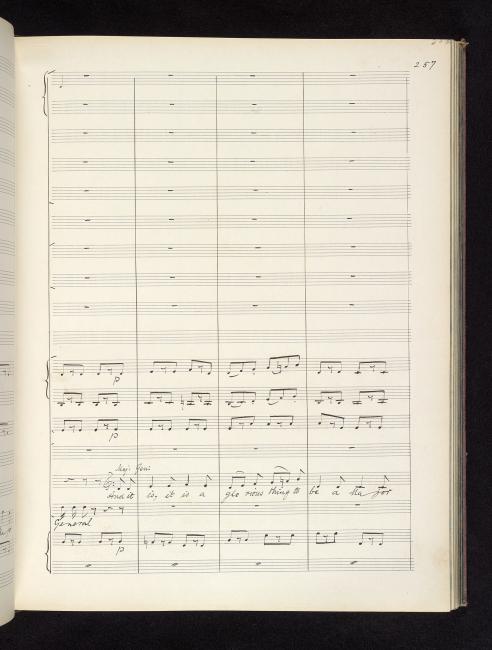 257
p
p
Maj: Gen:
And it is, it is a glorious thing to be a Major
General
p